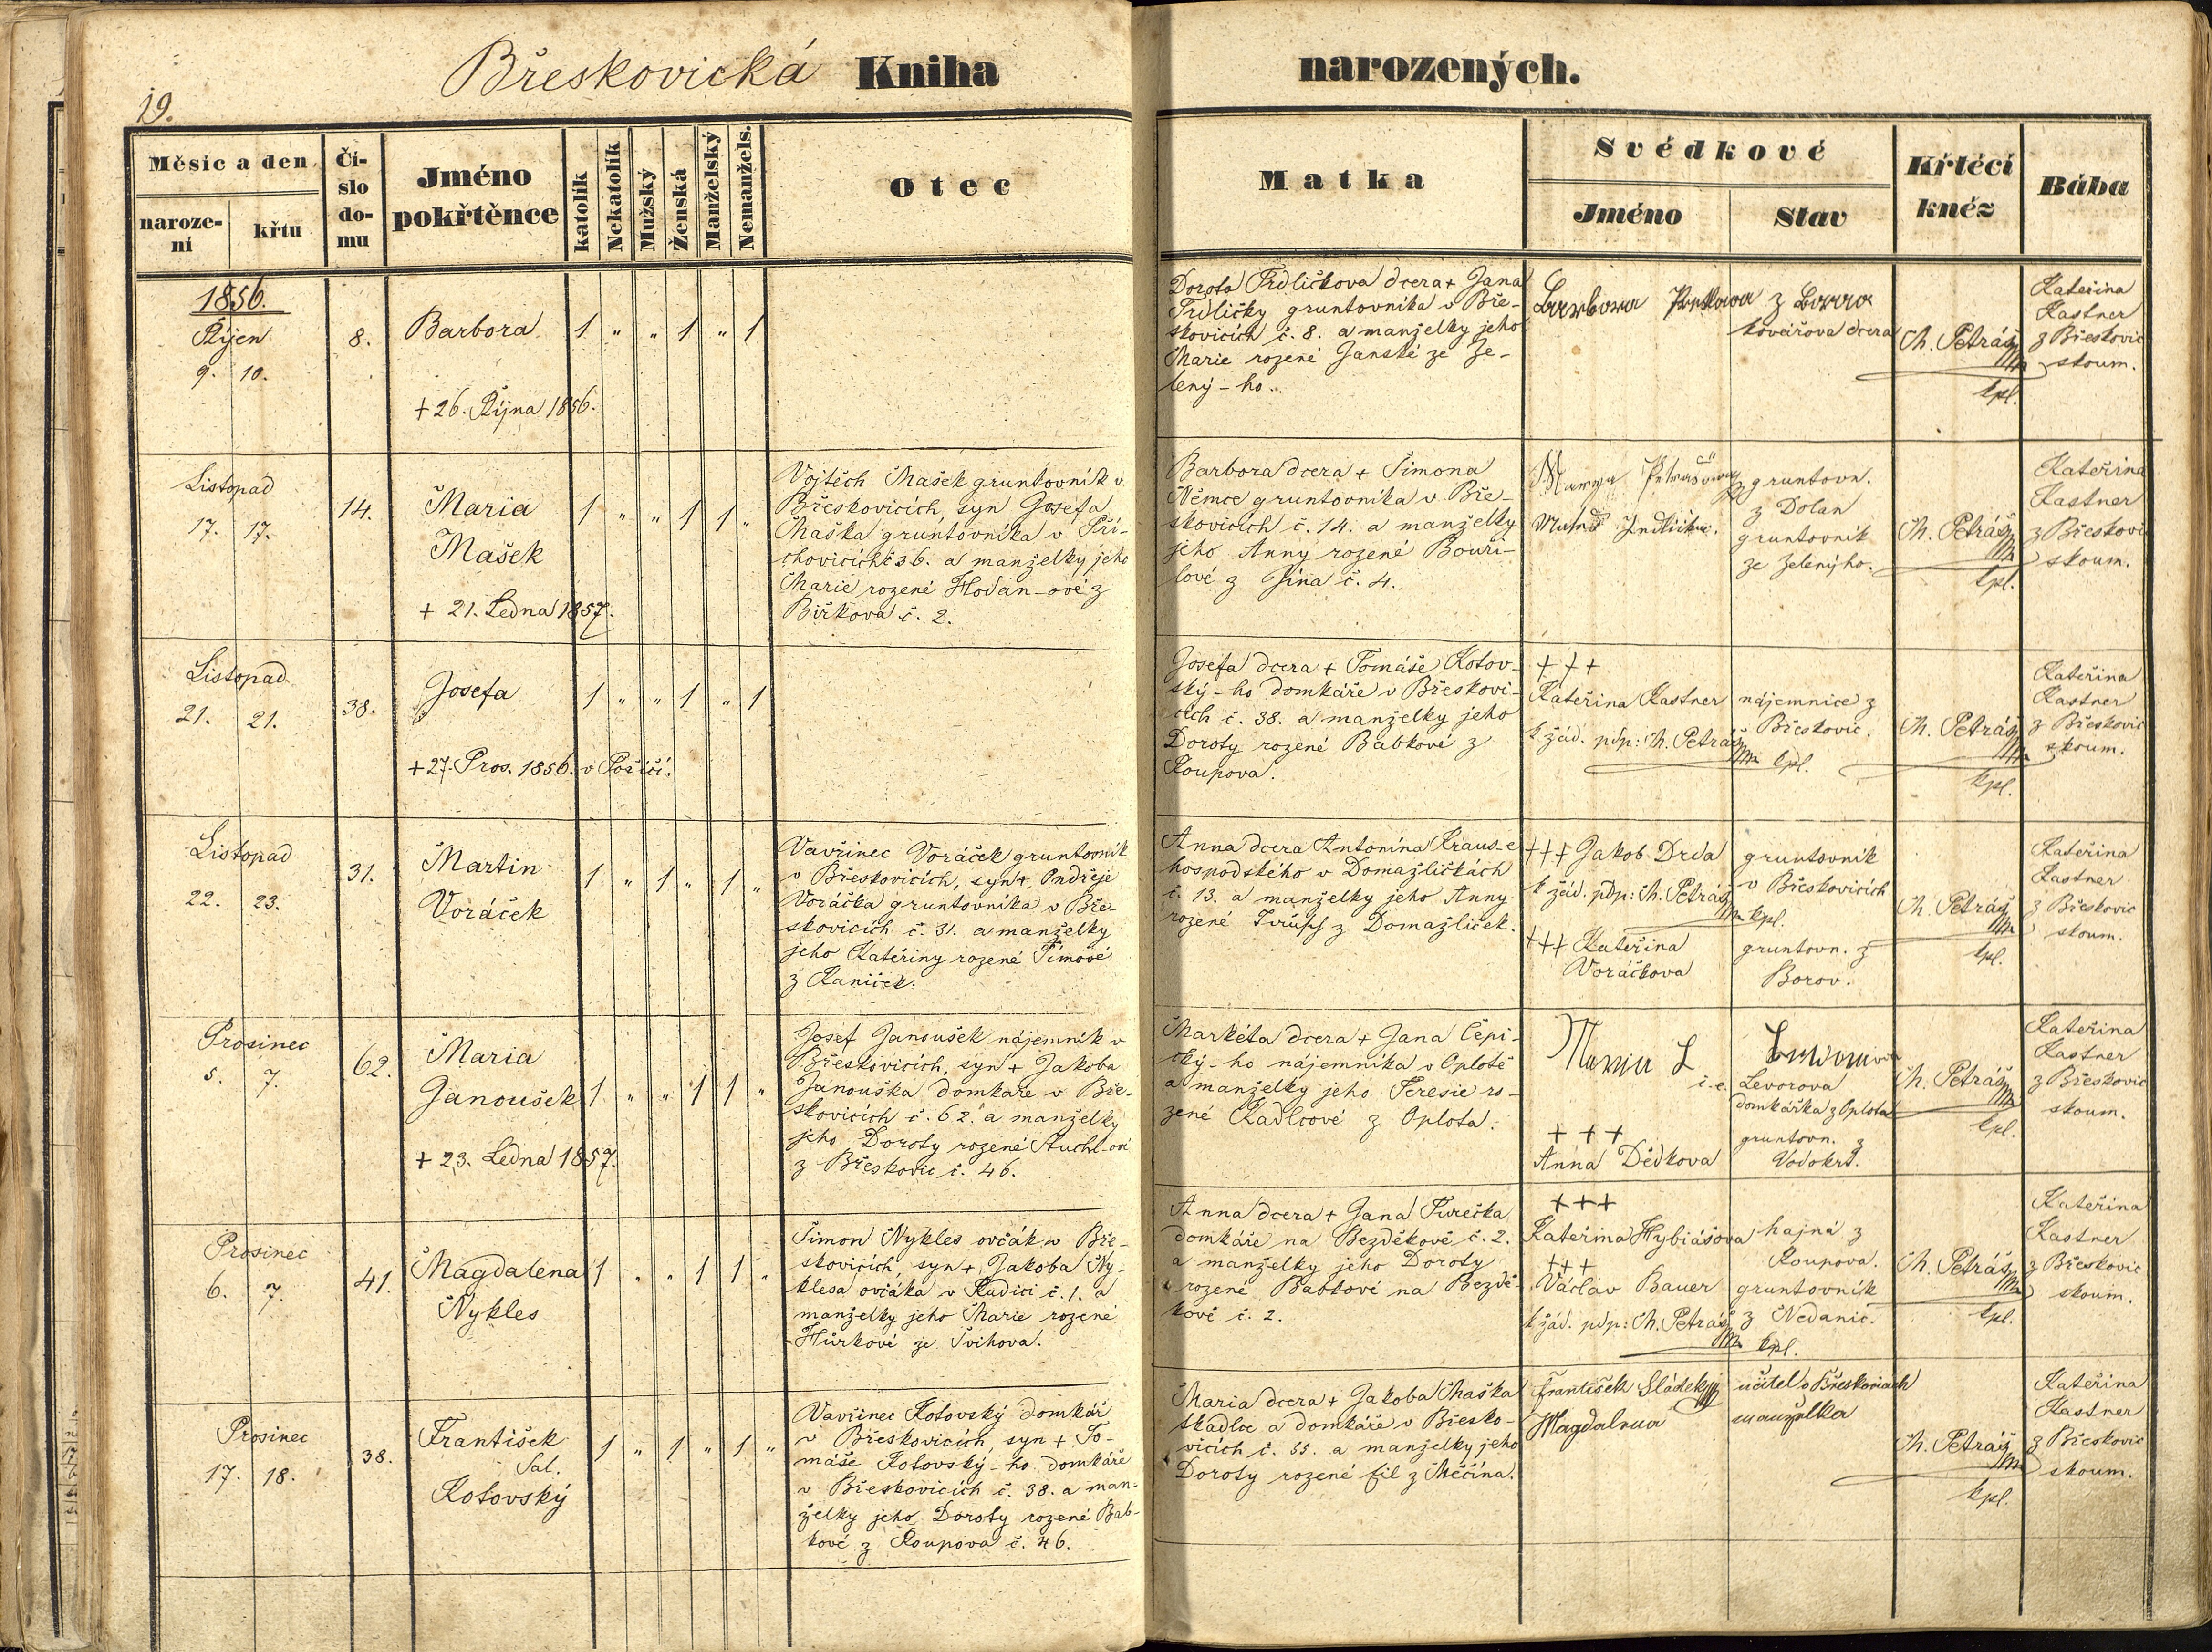 19.
Břeskovická Kniha narozených.
Měsíc a den
naroze-
ní
křtu
Čí-
slo
do-
mu
Jméno
pokřtěnce
katolík
Nekatolík
Mužský
Ženská
Manželský
Nemanžels.
Otec
Matka
Svědkové
Jméno
Stav
Křtěcí
kněz
Bába
1856.
Říjen
9. 10.
8.
Barbora
1 " " 1 " 1
+ 26. Října 1856.
Dorota Trdličkova dcera + Jana
Trdličky gruntovníka v Bře-
skovicích č. 8. a manželky jeho
Marie rozené Janské ze Ze-
lený-ho.
Barbora z Borova
kovářova dcera
Th. Petráš
kpl.
Kateřina
Kastner
z Břeskovic
zkoum.
Listopad
17. 17.
14.
Maria
Mašek
+ 21. Ledna 1857.
1 " " 1 1 "
Vojtěch Mašek gruntovník v
Břeskovicích, syn Josefa
Maška gruntovníka v Při-
chovicích č 36. a manželky jeho
Marie rozené Hodan-ové z
Biřkova č. 2.
Barbora dcera + Šimona
Němce gruntovníka v Bře-
skovicích č. 14. a manželky
jeho Anny rozené Bouři-
lové z Jína č. 4.
Marya Petrašova
gruntovn.
z Dolan
gruntovník
ze Zelenýho.
Th. Petráš
kpl.
Kateřina
Kastner
z Břeskovic
zkoum.
Listopad
21. 21.
38.
Josefa
+ 27. Pros. 1856. v Poříčí.
1 " " 1 " 1
Josefa dcera + Tomáše Kotov-
ský-ho domkáře v Břeskovi-
cích č. 38. a manželky jeho
Doroty rozené Babkové z
Roupova.
+ + +
Kateřina Kastner
k žád. pdp: Th. Petráš
kpl.
nájemnice z
Břeskovic.
Th. Petráš
kpl.
Kateřina
Kastner
z Břeskovic
zkoum.
Listopad
22. 23.
31.
Martin
Voráček
1 " 1 " 1 "
Vavřinec Voráček gruntovník
v Břeskovicích, syn + Ondřeje
Voráčka gruntovníka v Bře-
skovicích č. 31. a manželky
jeho Kateřiny rozené Tímové
z Kaniček.
Anna dcera Antonína Kraus-e
hospodského v Domažličkách
č. 13. a manželky jeho Anny
rozené z Domažliček.
+++ Jakob Drda
k žád. pdp: Th. Petráš
kpl.
gruntovník
v Břeskovicích
+++ Kateřina
Voráčkova
gruntovn. z
Borov.
Th. Petráš
kpl.
Kateřina
Kastner
z Břeskovic
zkoum.
Prosinec
5. 7.
62.
Maria
Janoušek
+ 23. Ledna 1857.
1 " " 1 1 "
Josef Janoušek nájemník v
Břeskovicích, syn + Jakoba
Janouška domkáře v Bře-
skovicích č. 62. a manželky
jeho Doroty rozené Stuchl-ové
z Břeskovic č. 46.
Markéta dcera + Jana Čepi-
cký-ho nájemníka v Oplotě
a manželky jeho Teresie ro-
zené Kadlcové z Oplota.
Maria L
i.e. Levorova
domkářka z Oplota
+ + +
Anna Dědkova
gruntovn. z
Vodokrt.
Th. Petráš
kpl.
Kateřina
Kastner
z Břeskovic
zkoum.
Prosinec
6. 7.
41.
Magdalena
Nykles
1 " " 1 1 "
Šimon Nykles ovčák v Bře-
skovicích, syn + Jakoba Ny-
klesa ovčáka v Rudici č. 1. a
manželky jeho Marie rozené
Hůrkové ze Švihova.
Anna dcera + Jana Turečka
domkáře na Bezděkově č. 2.
a manželky jeho Doroty
rozené Babkové na Bezdě-
kově č. 2.
+++
Kateřina Hybiášova
hajná z
Roupova.
+++
Václav Bauer
gruntovník
z Nedanic.
k žád. pdp: Th. Petráš
kpl.
Th. Petráš
kpl.
Kateřina
Kastner
z Břeskovic
zkoum.
Prosinec
17. 18.
38.
František
Sal.
Kotovský
1 " 1 " 1 "
Vavřinec Kotovský domkář
v Břeskovicích, syn + To-
máše Kotovský-ho domkáře
v Břeskovicích č. 38. a man-
želky jeho Doroty rozené Bab-
kové z Roupova č. 46.
Maria dcera + Jakoba Maška
tkadlce a domkáře v Břesko-
vicích č. 55. a manželky jeho
Doroty rozené Fil z Měčína.
František Sládek
učitel v Břeskovicích
Magdalena
manželka
Th. Petráš
kpl.
Kateřina
Kastner
z Břeskovic
zkoum.